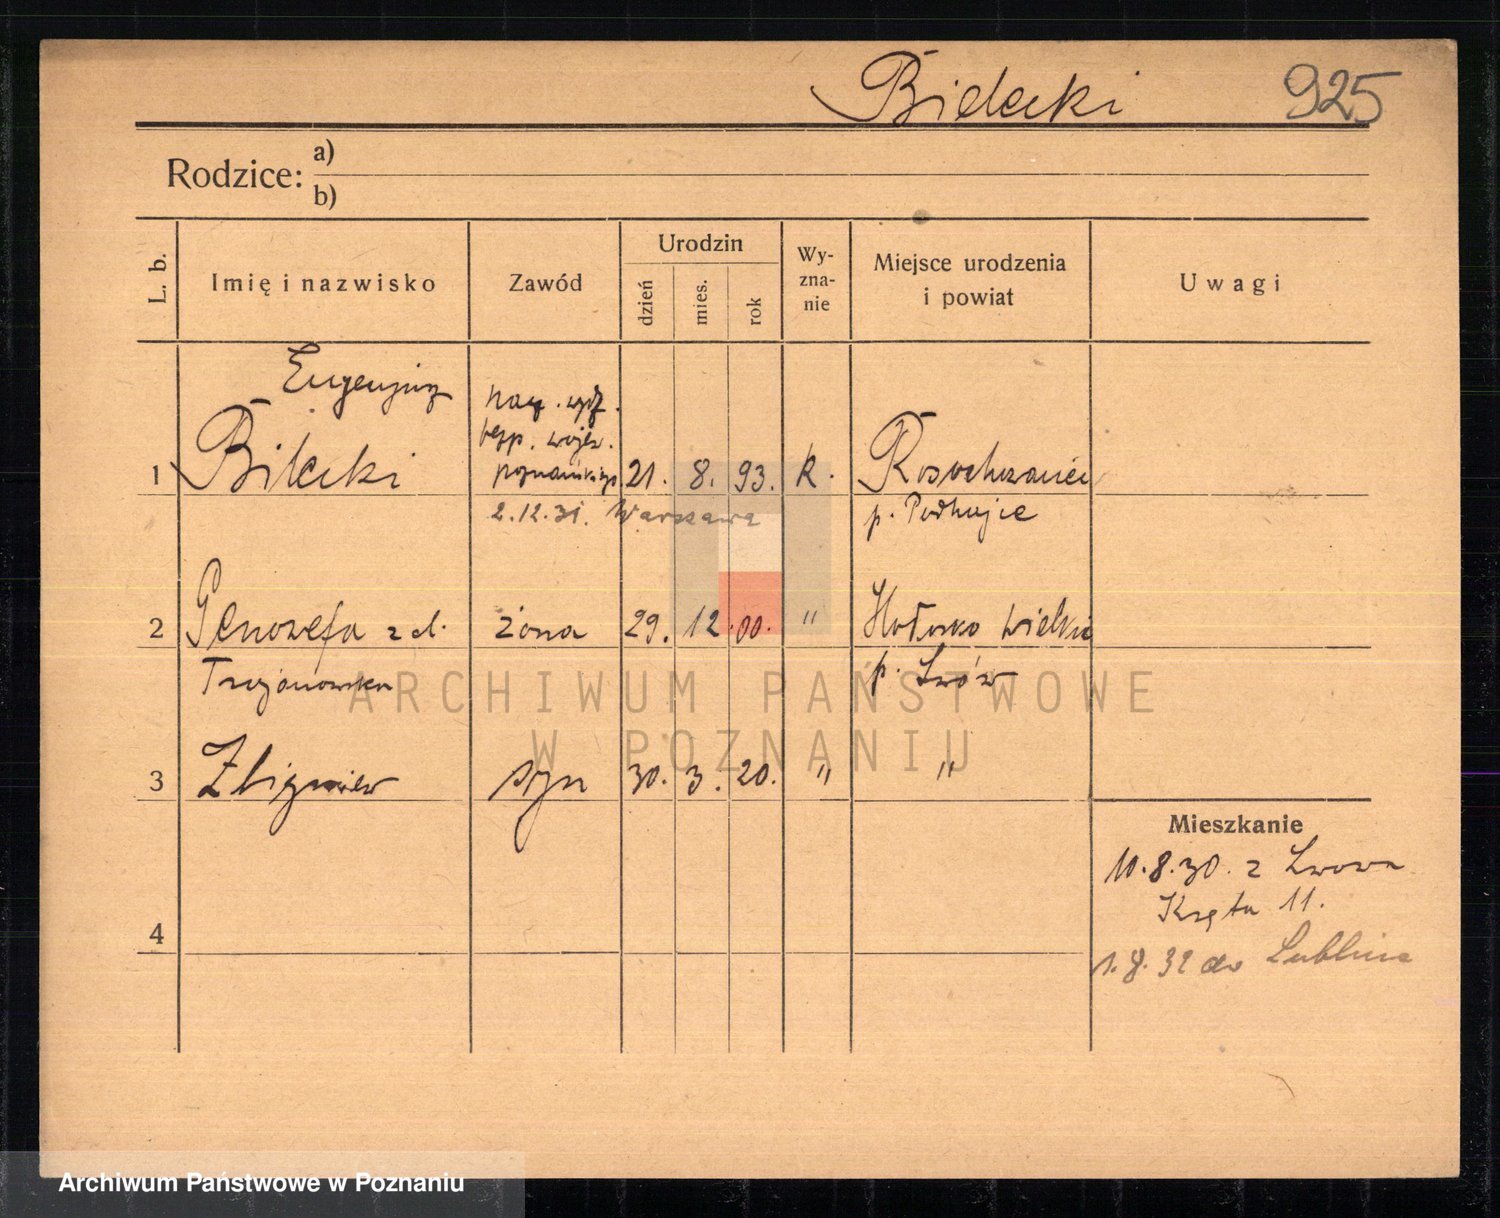 Bielecki 925
Rodzice: a)
b)
L. b. Imię i nazwisko Zawód Urodzin dzień mies. rok Wy-zna-nie Miejsce urodzenia i powiat Uwagi
Eugenjusz
1 Bilecki
nacz. wydz.
bezp. wojew.
poznańskiego 21. 8. 93. R. Rosochowaniec
2.12.31. Warszawa p. Podhajce
2 Genowefa z d. żona 29. 12. 00. " Hołosko Wielkie
Trojanowska p. Lwów
3 Zbigniew syn 30. 3. 20. " "
Mieszkanie
10.8.30. z Lwowa
Kręta 11.
4
1.8.32 do Lublina
ARCHIWUM PAŃSTWOWE
W POZNANIU
Archiwum Państwowe w Poznaniu